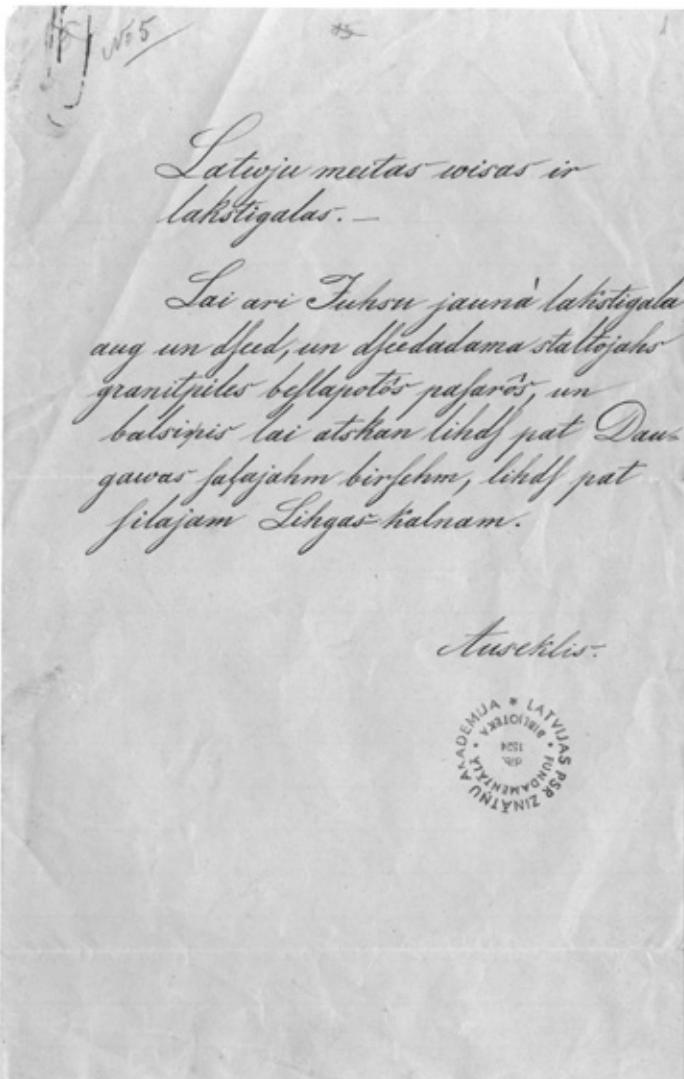 № 5
15
1
Latwju meitas wisas ir
lakstigalas. —
Lai ari Juhsu jaunà lakstigala
aug un dſeed, un dſeedadama staltojahs
granitpiles beſlapotôs paſarôs, un
balsiņis lai atskan lihdſ pat Dau-
gawas ſaļajahm birſehm, lihdſ pat
ſilajam Lihgas-kalnam.
Auseklis.
LATVIJAS PSR ZINĀTŅU AKADEMIJA
FUNDAMENTĀLĀ BIBLIOTEKA
dib.
1524